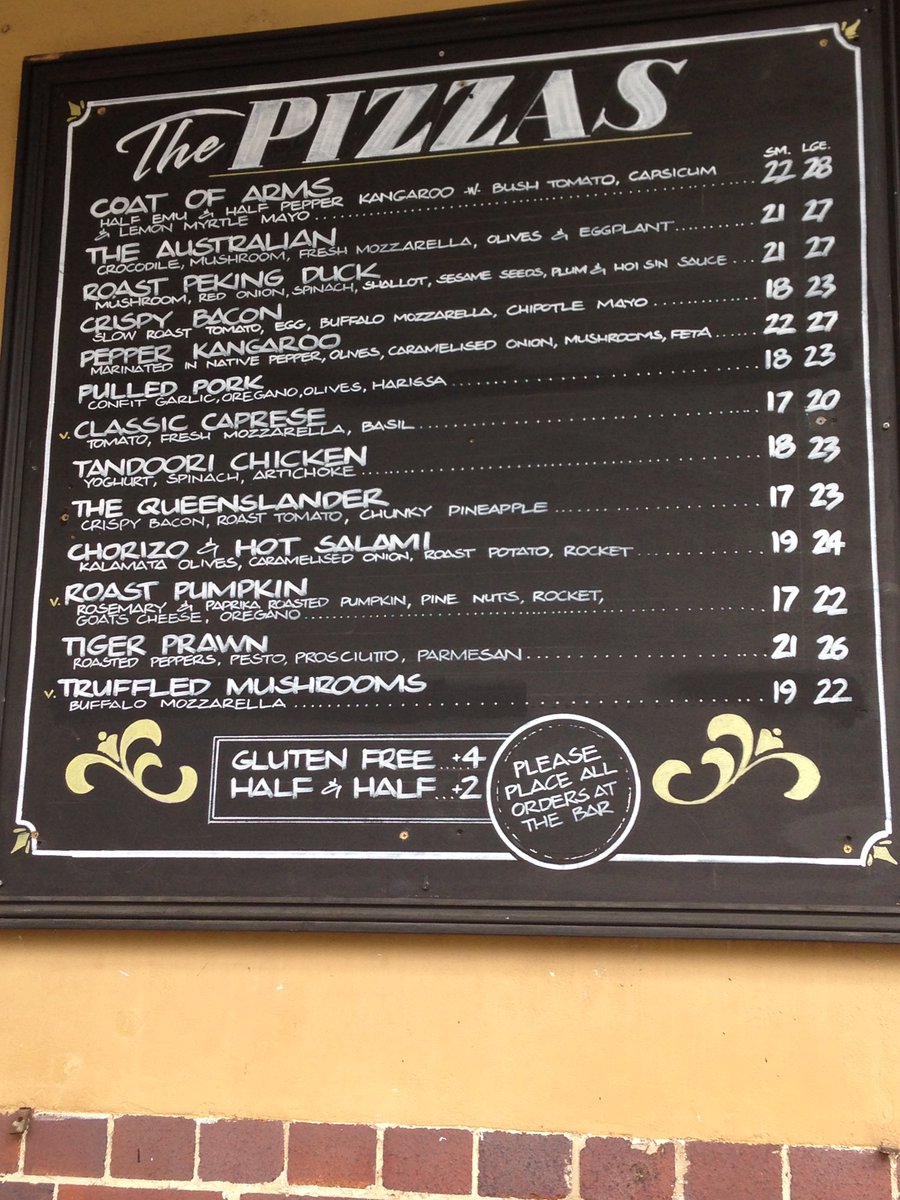 The PIZZAS
SM. LGE.
COAT OF ARMS
HALF EMU & HALF PEPPER KANGAROO -W- BUSH TOMATO, CAPSICUM
& LEMON MYRTLE MAYO 22 28
THE AUSTRALIAN
CROCODILE, MUSHROOM, FRESH MOZZARELLA, OLIVES & EGGPLANT 21 27
ROAST PEKING DUCK
MUSHROOM, RED ONION, SPINACH, SHALLOT, SESAME SEEDS, PLUM & HOI SIN SAUCE 21 27
CRISPY BACON
SLOW ROAST TOMATO, EGG, BUFFALO MOZZARELLA, CHIPOTLE MAYO 18 23
PEPPER KANGAROO
MARINATED IN NATIVE PEPPER, OLIVES, CARAMELISED ONION, MUSHROOMS, FETA 22 27
PULLED PORK
CONFIT GARLIC, OREGANO, OLIVES, HARISSA 18 23
V. CLASSIC CAPRESE
TOMATO, FRESH MOZZARELLA, BASIL 17 20
TANDOORI CHICKEN
YOGHURT, SPINACH, ARTICHOKE 18 23
THE QUEENSLANDER
CRISPY BACON, ROAST TOMATO, CHUNKY PINEAPPLE 17 23
CHORIZO & HOT SALAMI
KALAMATA OLIVES, CARAMELISED ONION, ROAST POTATO, ROCKET 19 24
V. ROAST PUMPKIN
ROSEMARY & PAPRIKA ROASTED PUMPKIN, PINE NUTS, ROCKET,
GOATS CHEESE, OREGANO 17 22
TIGER PRAWN
ROASTED PEPPERS, PESTO, PROSCIUTTO, PARMESAN 21 26
V. TRUFFLED MUSHROOMS
BUFFALO MOZZARELLA 19 22
GLUTEN FREE +4
HALF & HALF +2
PLEASE
PLACE ALL
ORDERS AT
THE BAR